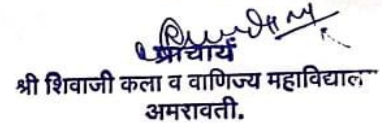 प्राचार्य
श्री शिवाजी कला व वाणिज्य महाविद्यालय
अमरावती.